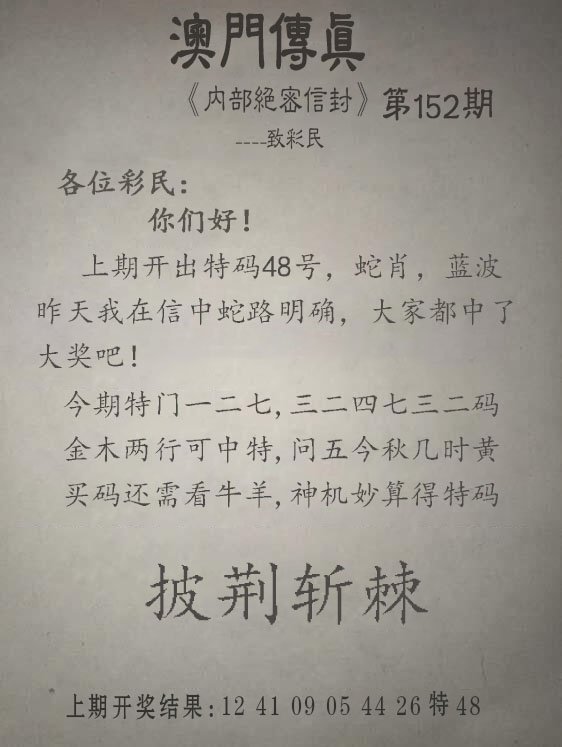 澳門傳眞
《内部絕密信封》第152期
----致彩民
各位彩民:
你们好!
上期开出特码48号，蛇肖，蓝波
昨天我在信中蛇路明确，大家都中了
大奖吧!
今期特门一二七,三二四七三二码
金木两行可中特,问五今秋几时黄
买码还需看牛羊,神机妙算得特码
披荆斩棘
上期开奖结果:12 41 09 05 44 26 特 48